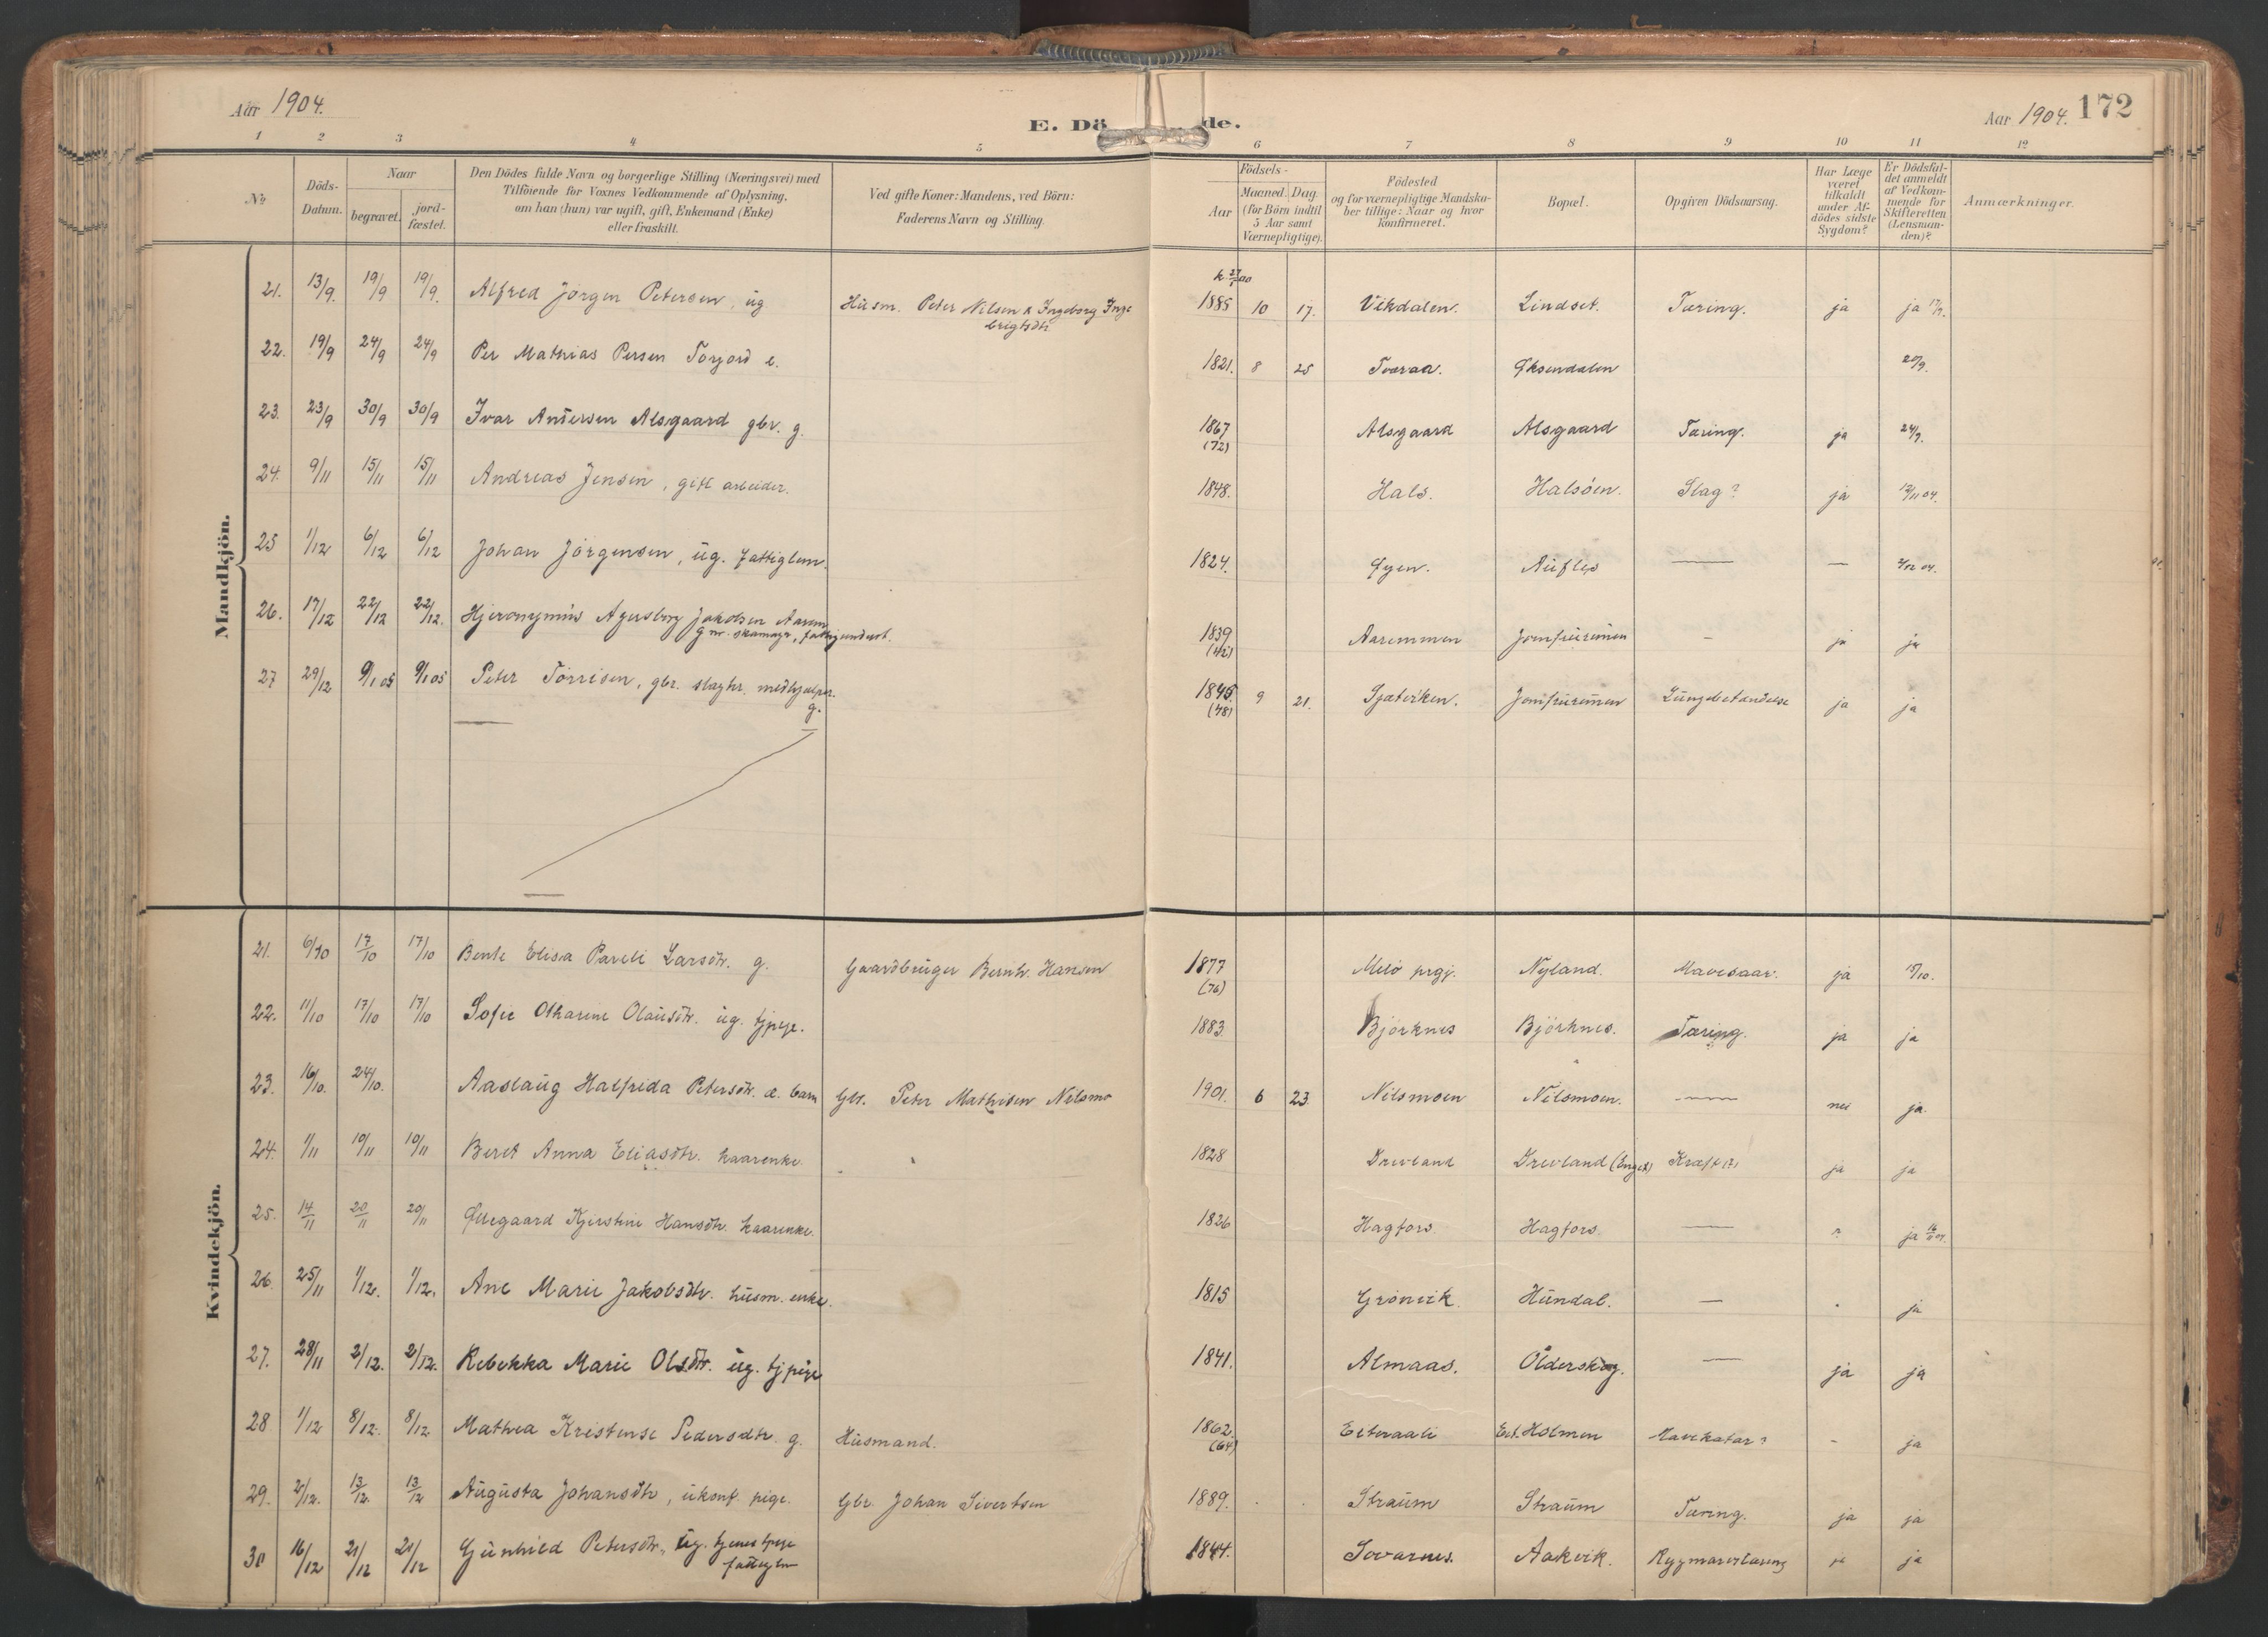 Aar 1904.
E. Dö de.
Aar 1904. 172
1 2 3 4 5 6 7 8 9 10 11 12
No
Döds-Datum.
Naar
begravet.
jord-fæstet.
Den Dödes fulde Navn og borgerlige Stilling (Næringsvei) med
Tilföiende for Voxnes Vedkommende af Oplysning,
om han (hun) var ugift, gift, Enkemand (Enke)
eller fraskilt.
Ved gifte Koner: Mandens, ved Börn:
Faderens Navn og Stilling.
Födsels-
Aar
Maaned. Dag.
(for Börn indtil
5 Aar samt
Værnepligtige).
Födested
og for værnepligtige Mandska-
ber tillige: Naar og hvor
konfirmeret.
Bopæl.
Opgiven Dödsaarsag.
Har Læge
været
tilkaldt
under Af-
dödes sidste
Sygdom?
Er Dödsfal-
det anmeldt
af Vedkom-
mende for
Skifteretten
(Lensman-
den)?
Anmærkninger.
Mandkjön.
21. 13/9 19/9 19/9. Alfred Jørgen Petersen, ug Husm. Peter Nilsen & Ingeborg Inge
brigtsdtr 1885 10 17. Vikdalen. Lindset. Tæring. ja ja 17/9.
22. 19/9 24/9 24/9 Per Mathias Persen Torjord e. 1821. 8 25 Tværaa. Øksendalen 20/9.
23. 23/9 30/9 30/9 Ivar Andersen Alsgaard gbr. g. 1867 (72) Alsgaard Alsgaard Tæring. ja 24/9.
24. 9/11 15/11 15/11 Andreas Jensen, gift arbeider. 1848. Hals. Halsöen. Slag? ja 12/11 04.
25 1/12 6/12 6/12 Johan Jörgensen, ug. fattiglem. 1824. Øyen. Aufles — — 2/12 04.
26. 17/12 22/12 22/12. Hjeronymus Agersborg Jakobsen
1839 Aaremmen Jomfruremmen - ja ja
27 29/12 9/1 05 9/1 05 Peter Torrisen, gbr. slagtr. medhjælper.
g. 1845 (48) 9 21. Sjøtviken. Jomfruremmen Lungebetændelse ja ja
Kvindekjön.
21. 6/10 17/10 17/10 Bente Elisa Pareli Larsdtr. g. Gaardbruger Bernh. Hansen 1877 (76) Melö prgj. Nyland. Mavesaar. ja 15/10.
22. 11/10 17/10 17/10 Sofie Otharine Olausdtr. ug. tjpige. 1883. Björknes Björknes. Tæring. ja ja
23. 16/10. 24/10. Aaslaug Halfrida Petersdtr. æ. barn Gbr. Peter Mathisen Nilsmo 1901. 6 23. Nilsmoen Nilsmoen. — nei ja.
24. 1/11 10/11 10/11 Beret Anna Eliasdtr. kaarenke. 1828 Drevland Drevland (Enget) Kræft (?) ja ja
25. 14/11 20/11 20/11 Øllegaard Kjerstine Hansdtr. kaarenke. 1826 Hagfors. Hagfors. — ? ja
26. 25/11 1/12. 1/12. Ane Marie Jakobsdtr. husm. enke. 1815 Grönvik. Hundal. — . ja
27. 28/11 2/12. 2/12. Rebekka Marie Olsdtr. ug. tjpige 1841. Almaas. Olderskog. — ja ja
28 1/12 8/12. 8/12. Mathea Kristense Pedersdtr. g. Husmand. 1862. (64) Eiteraali Eit. Holmen Mavekatar? - ja
29. 2/12. 13/12. 13/12 Augusta Johansdtr, ukonf. pige. Gbr. Johan Sivertsen 1889. Straum Straum Tæring. ja ja
30 16/12 21/12 21/12 Gunhild Petersdtr, ug. tjenestpige
fattiglem 1844. Sovarnes. Aakvik. Rygmarvstæring ja ja